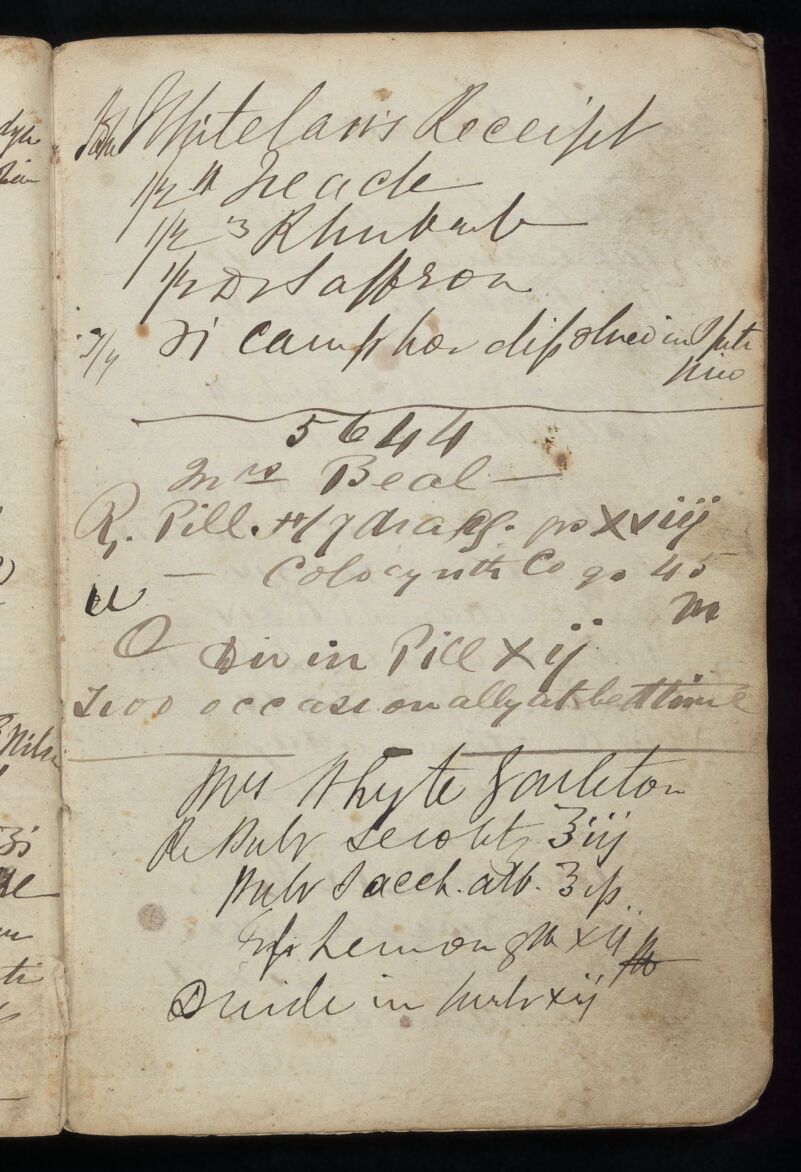 Whitelaw's Receipt
1/2 ℔ Treacle
1/2 ℥ Rhubarb
1/2 Dr Saffron
ʒi camphor dissolved in Spts
Vino
5644
Mrs Beal —
℞. Pill. Hydrarg. grs xviij
— Colocynth Co gs 45
M
Div in Pill xij
Two occasionally at bedtime
Mrs Whyte Gorleton
℞ Pulv Seidlitz ʒiij
Pulv Sacch. alb. ʒiss
Lemon gtt xij
Divide in pulv xij